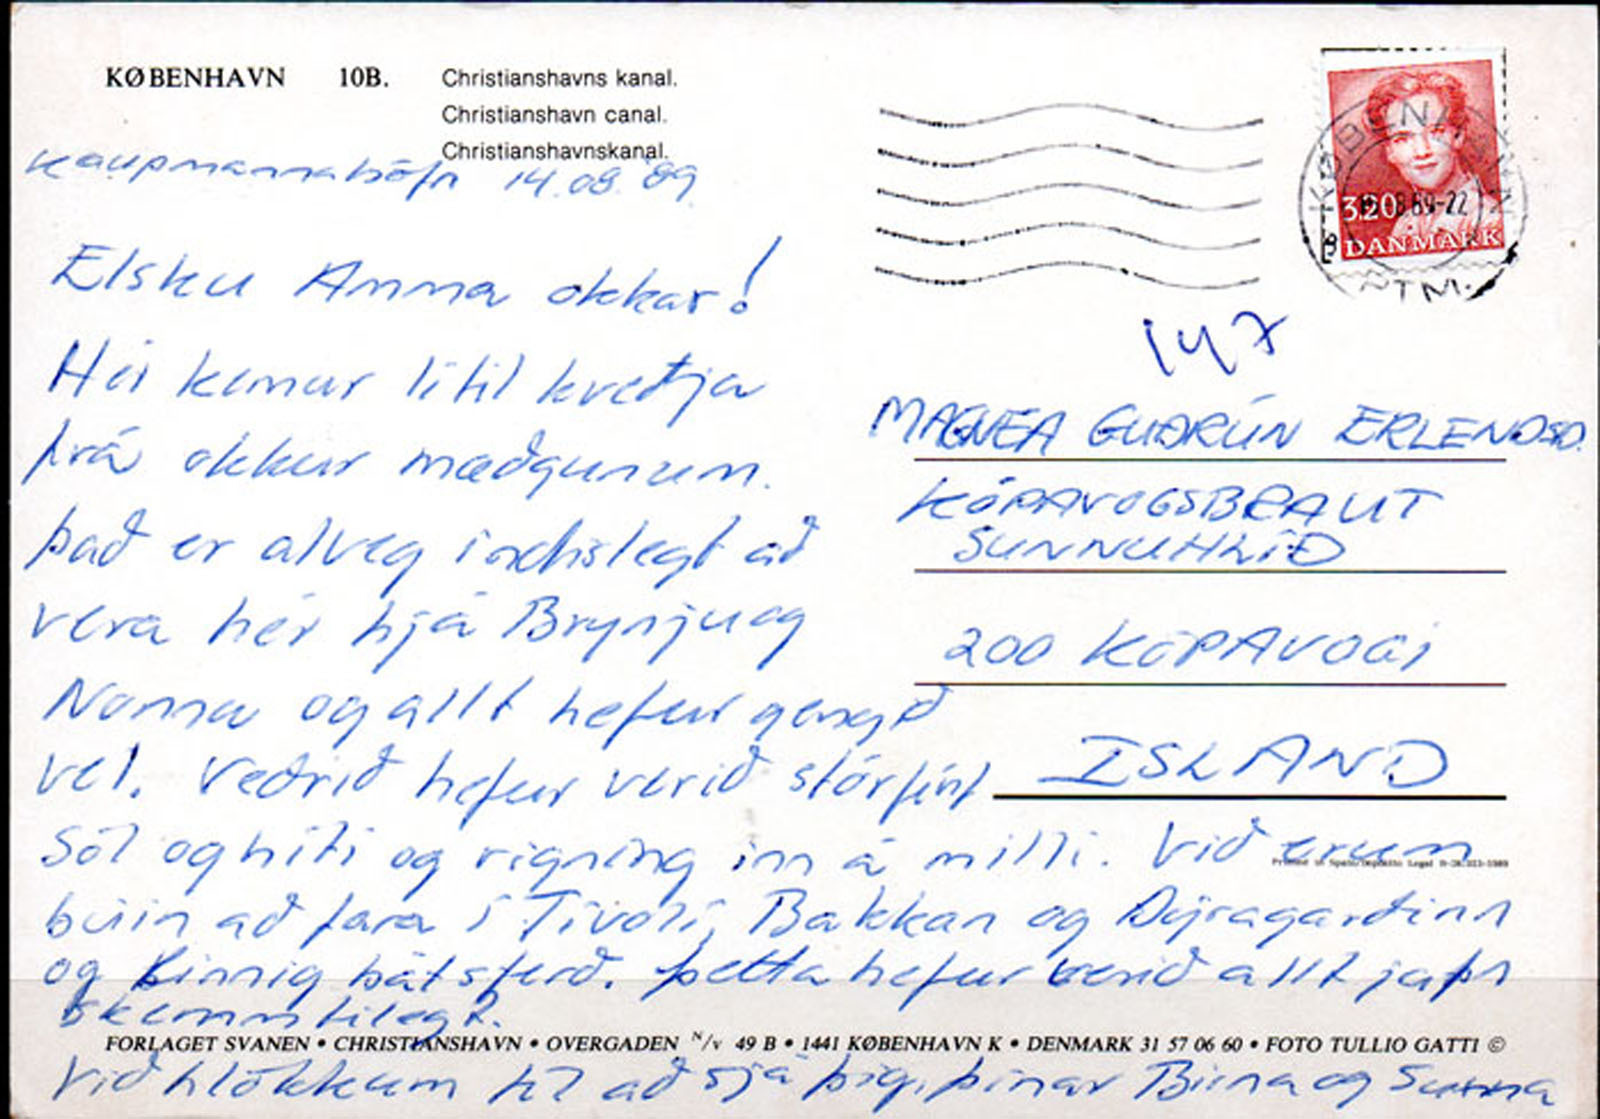 KØBENHAVN 10B. Christianshavns kanal.
Christianshavn canal.
Christianshavnskanal.
Kaupmannahöfn 14.08.89
Elsku Amma okkar!
Hér kemur lítil kveðja
frá okkur mæðgunum.
Það er alveg indislegt að
vera hér hjá Brynju og
Nonna og allt hefur gengið
vel. Veðrið hefur verið stórfínt
Sól og hiti og rigning inn á milli. Við erum
búin að fara í Tívolí, Bakkan og Dýragarðinn
og Einnig bátsferð. Þetta hefur verið allt jafn
skemmtilegt.
Við hlökkum til að sjá þig, þínar Birna og Sunna
KØBENHAVN
89-22
3.20
DANMARK
147
MAGNEA GUÐRÚN ERLENDSD.
KÓPAVOGSBRAUT
SUNNUHLÍÐ
200 KÓPAVOGI
ISLAND
Printed in Spain Depósito Legal
FORLAGET SVANEN • CHRISTIANSHAVN • OVERGADEN N/V 49 B • 1441 KØBENHAVN K • DENMARK 31 57 06 60 • FOTO TULLIO GATTI ©